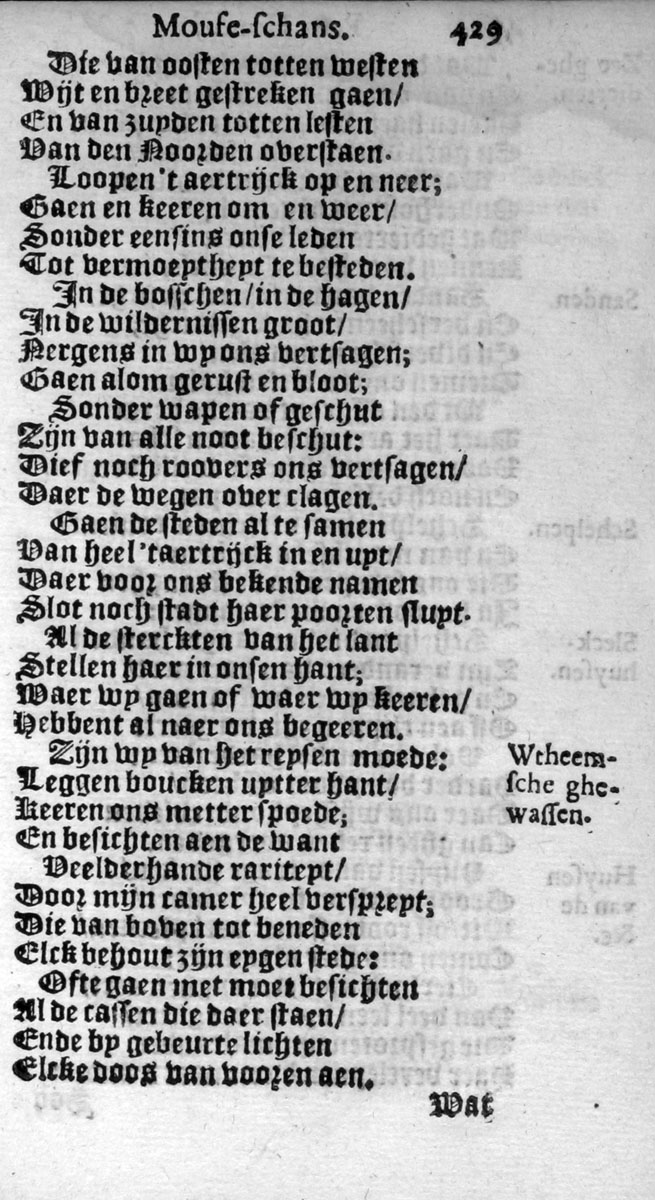 Mouſe-ſchans. 429
Die van ooſten totten weſten
Wijt en breet geſtreken gaen/
En van zuyden totten leſten
Van den Noorden overſtaen.
Loopen 't aertrijck op en neer;
Gaen en keeren om en weer/
Sonder eenſins onſe leden
Tot vermoeytheyt te beſteden.
In de boſſchen/in de hagen/
In de wilderniſſen groot/
Nergens in wy ons vertſagen;
Gaen alom geruſt en bloot;
Sonder wapen of geſchut
Zijn van alle noot beſchut:
Dief noch roovers ons vertſagen/
Daer de wegen over clagen.
Gaen de ſteden al te ſamen
Van heel 'taertrijck in en uyt/
Daer voor ons bekende namen
Slot noch ſtadt haer poorten ſluyt.
Al de ſterckten van het lant
Stellen haer in onſen hant;
Waer wy gaen of waer wy keeren/
Hebbent al naer ons begeeren.
Zijn wy van het reyſen moede:
Leggen boucken uytter hant/
Keeren ons metter ſpoede;
En beſichten aen de want
Veelderhande rariteyt/
Door mijn camer heel verſpreyt;
Die van boven tot beneden
Elck behout zijn eygen ſtede:
Ofte gaen met moet beſichten
Al de caſſen die daer ſtaen/
Ende by gebeurte lichten
Elcke doos van vooren aen.
Wtheem-
ſche ghe-
waſſen.
Wat